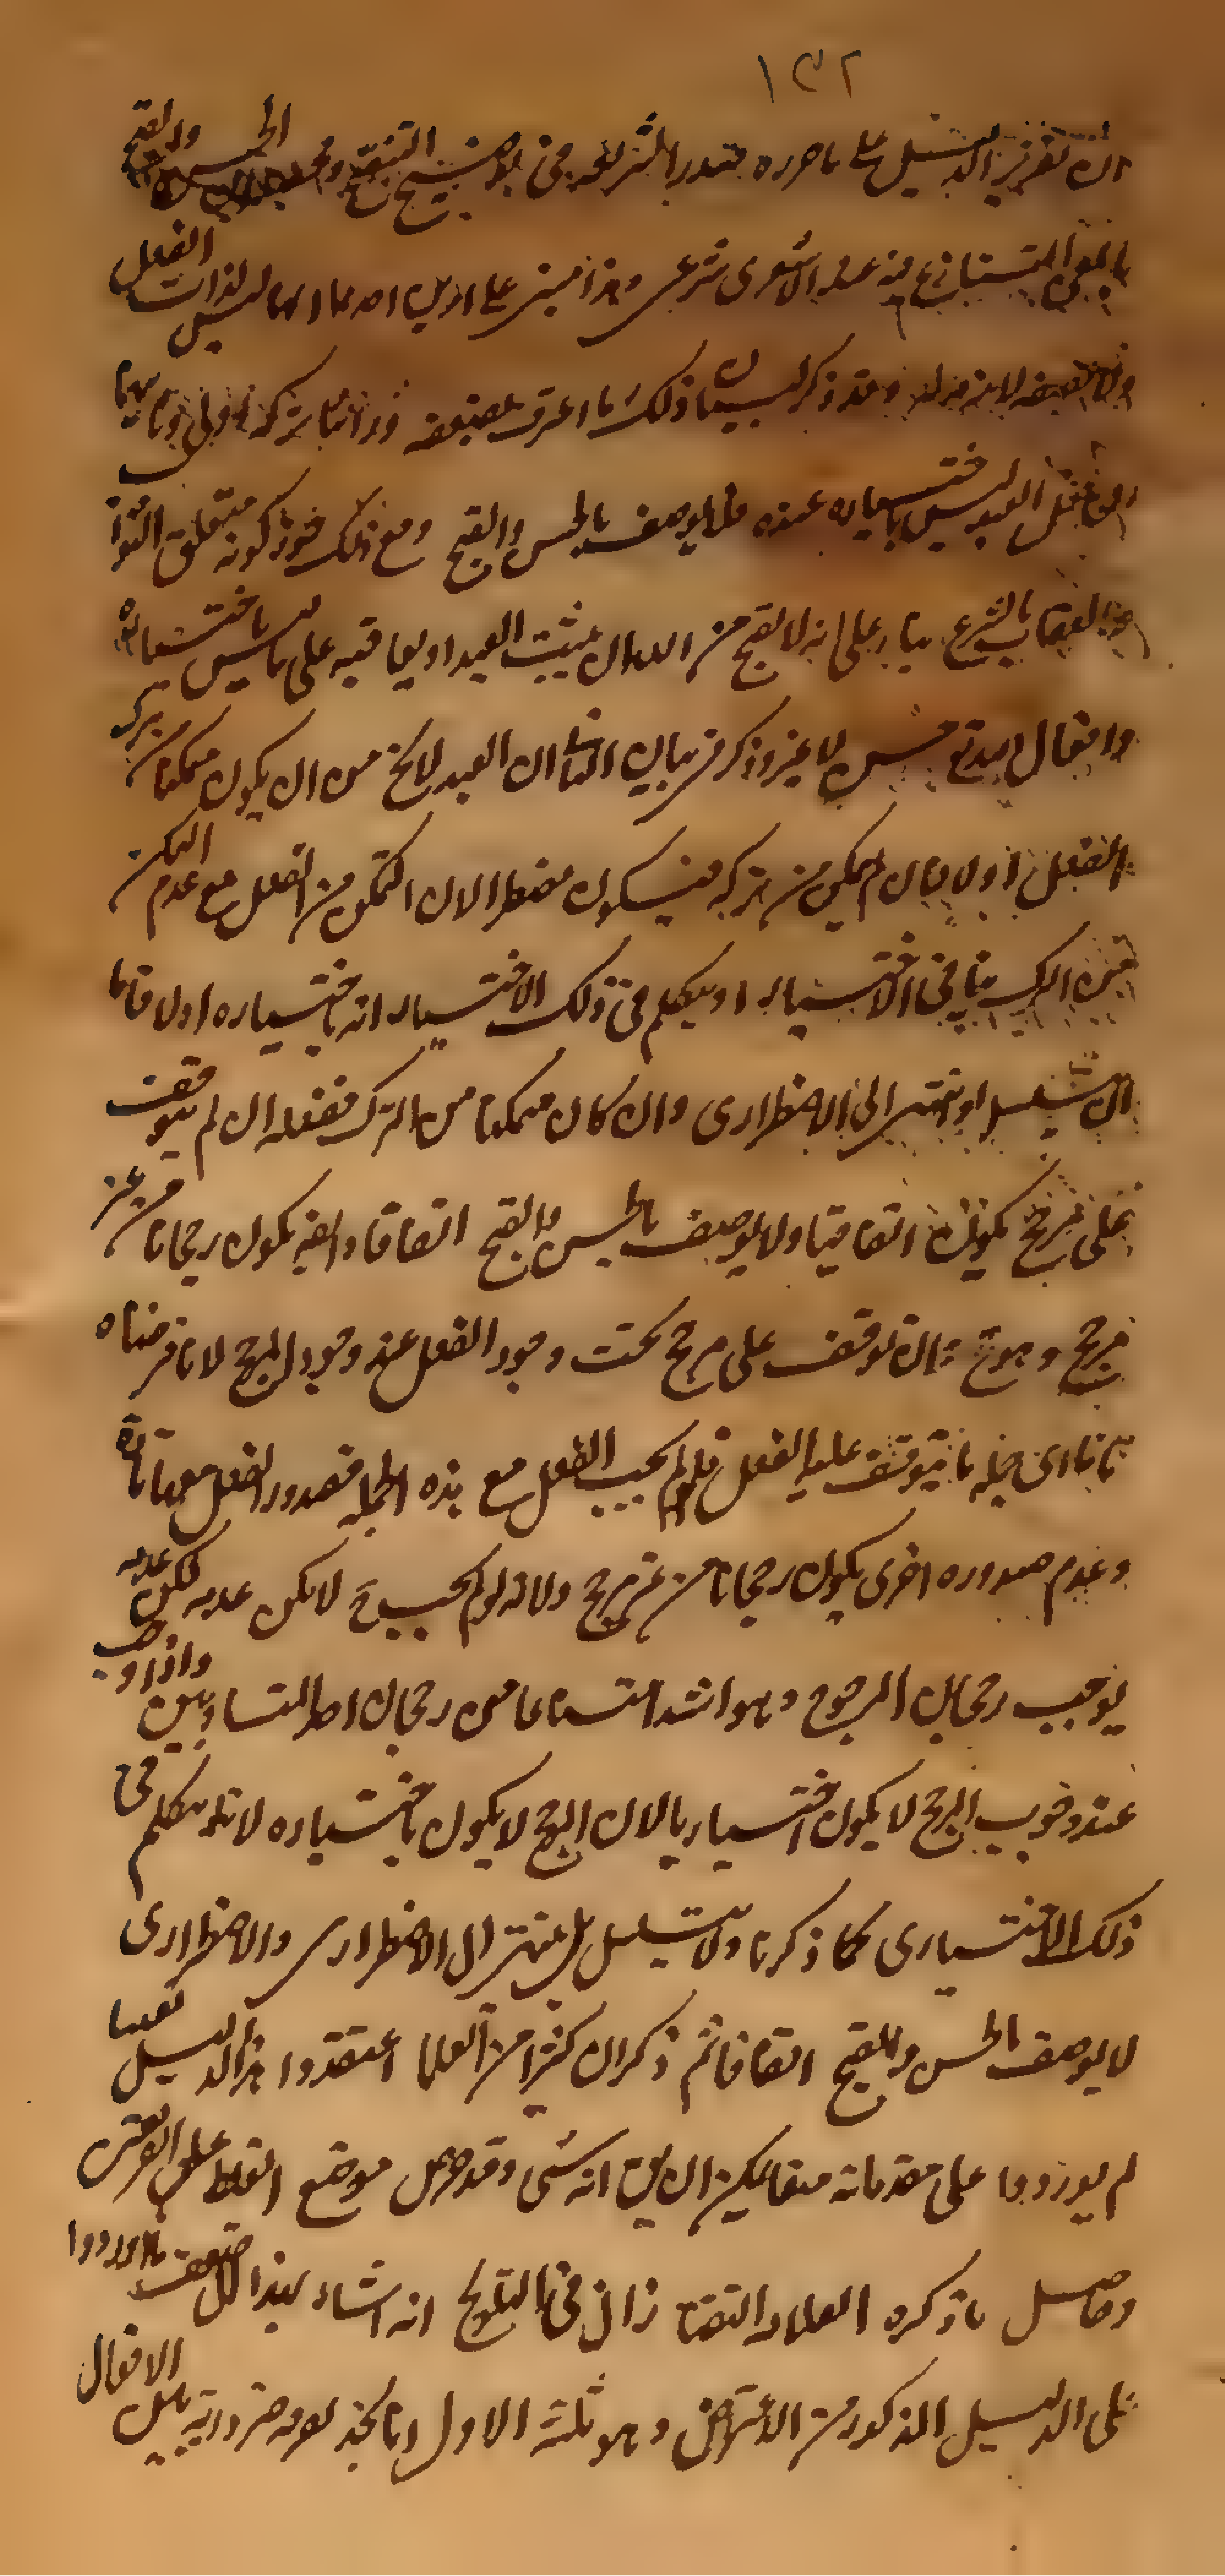 ١٣٢
ان تقرير الدليل على ما حرره صدر الشريعة في توضيح التنقيح الحسن والقبح
بالمعنى المتنازع فيه عند الاشعرى شرعى وهذا مبنى على امرين احدهما انهما ليس لذات الفعل
وقد ذكر لبيان ذلك ما اعترف بضعفه فى اثنائه تركه اولى وثانيهما
ان فعل العبد ليس باختياره عنده فلا يوصف بالحسن والقبح ومع ذلك جوز كونه متعلق الثواب
والعقاب بالشرع بناء على انه لا يقبح من الله ان يثيب العبد او يعاقبه على ما ليس باختياره
وافعال العبد لا غير وذكر فى بيان الثانى ان العبد لا يخ من ان يكون متمكنا من ترك
الفعل اولا فان لم يمكن من تركه فيكون مضطرا لان التمكن من الفعل مع عدم التمكن
من الترك ينافى الاختيار او يتكلم فى ذلك الاختيار انه باختياره اولا فاما
ان يتسلسل او ينتهى الى الاضطرارى وان كان متمكنا من الترك ففعله ان لم يتوقف
على مرجح يكون اتفاقيا ولا يوصف بالحسن والقبح اتفاقا وايضا يكون رجحانا من غير
مرجح وهو مح وان توقف على مرجح يجب وجود الفعل عند وجود المرجح لانا فرضناه
تاما اى جملة ما يتوقف عليه الفعل فلو لم يجب الفعل مع هذه الجملة فصدور الفعل معها تارة
وعدم صدوره اخرى يكون رجحانا من غير مرجح ولانه لو لم يجب ح لامكن عدمه لكن عدمه
يوجب رجحان المرجوح وهو اشد امتناعا من رجحان احد المتساويين واذا وجب
عند وجوب المرجح لا يكون اختياريا لان المرجح لا يكون باختياره لانه نتكلم فى
ذلك الاختيارى كما ذكرنا ولا يتسلسل بل ينتهى الى الاضطرارى والاضطرارى
لا يوصف بالحسن والقبح اتفاقا ثم ذكر ان كثيرا من العلما اعتقدوا هذا الدليل يقينيا
لم يوردوا على مقدماته منعا يمكن ان يق انه شىء وقد خفى موضع الغلط على الفريقين
وحاصل ما ذكره العلامة التفتازانى فى التلويح انه اشار بهذا الى ضعف ما اوردوا
على الدليل المذكور من الاعتراض وهو ثلثة الاول انا نجد تفرقة ضرورية بين الافعال